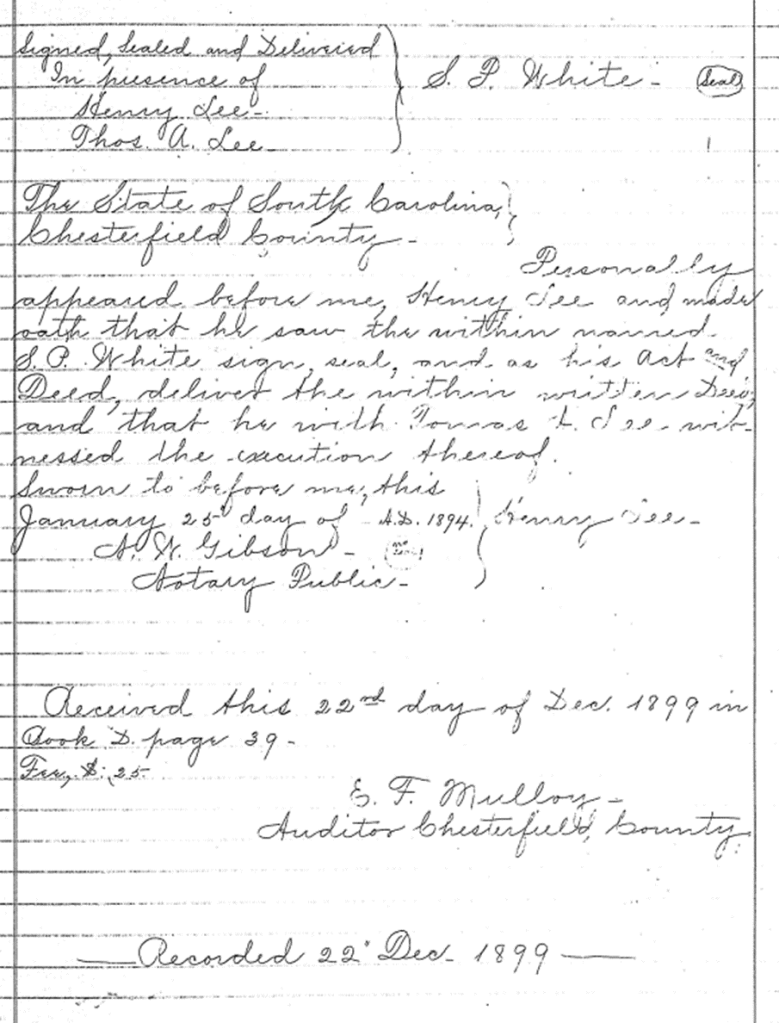 Signed, Sealed and Delivered
In presence of
Henry Lee-
Thos. A. Lee-
S. P. White- Seal
The State of South Carolina,
Chesterfield County-
Personally
appeared before me, Henry Lee and made
oath that he saw the within named
S. P. White sign, seal, and as his Act and
Deed, deliver the within written Deed,
and that he with Tomas A. Lee wit-
nessed the execution thereof.
Sworn to before me, this
January 25th day of A.D. 1894. Henry Lee-
A. W. Gibson-
Notary Public-
Received this 22nd day of Dec. 1899 in
Book D. page 39-
Fee, $.25
E. F. Mulloy-
Auditor Chesterfield, County.
Recorded 22 Dec- 1899